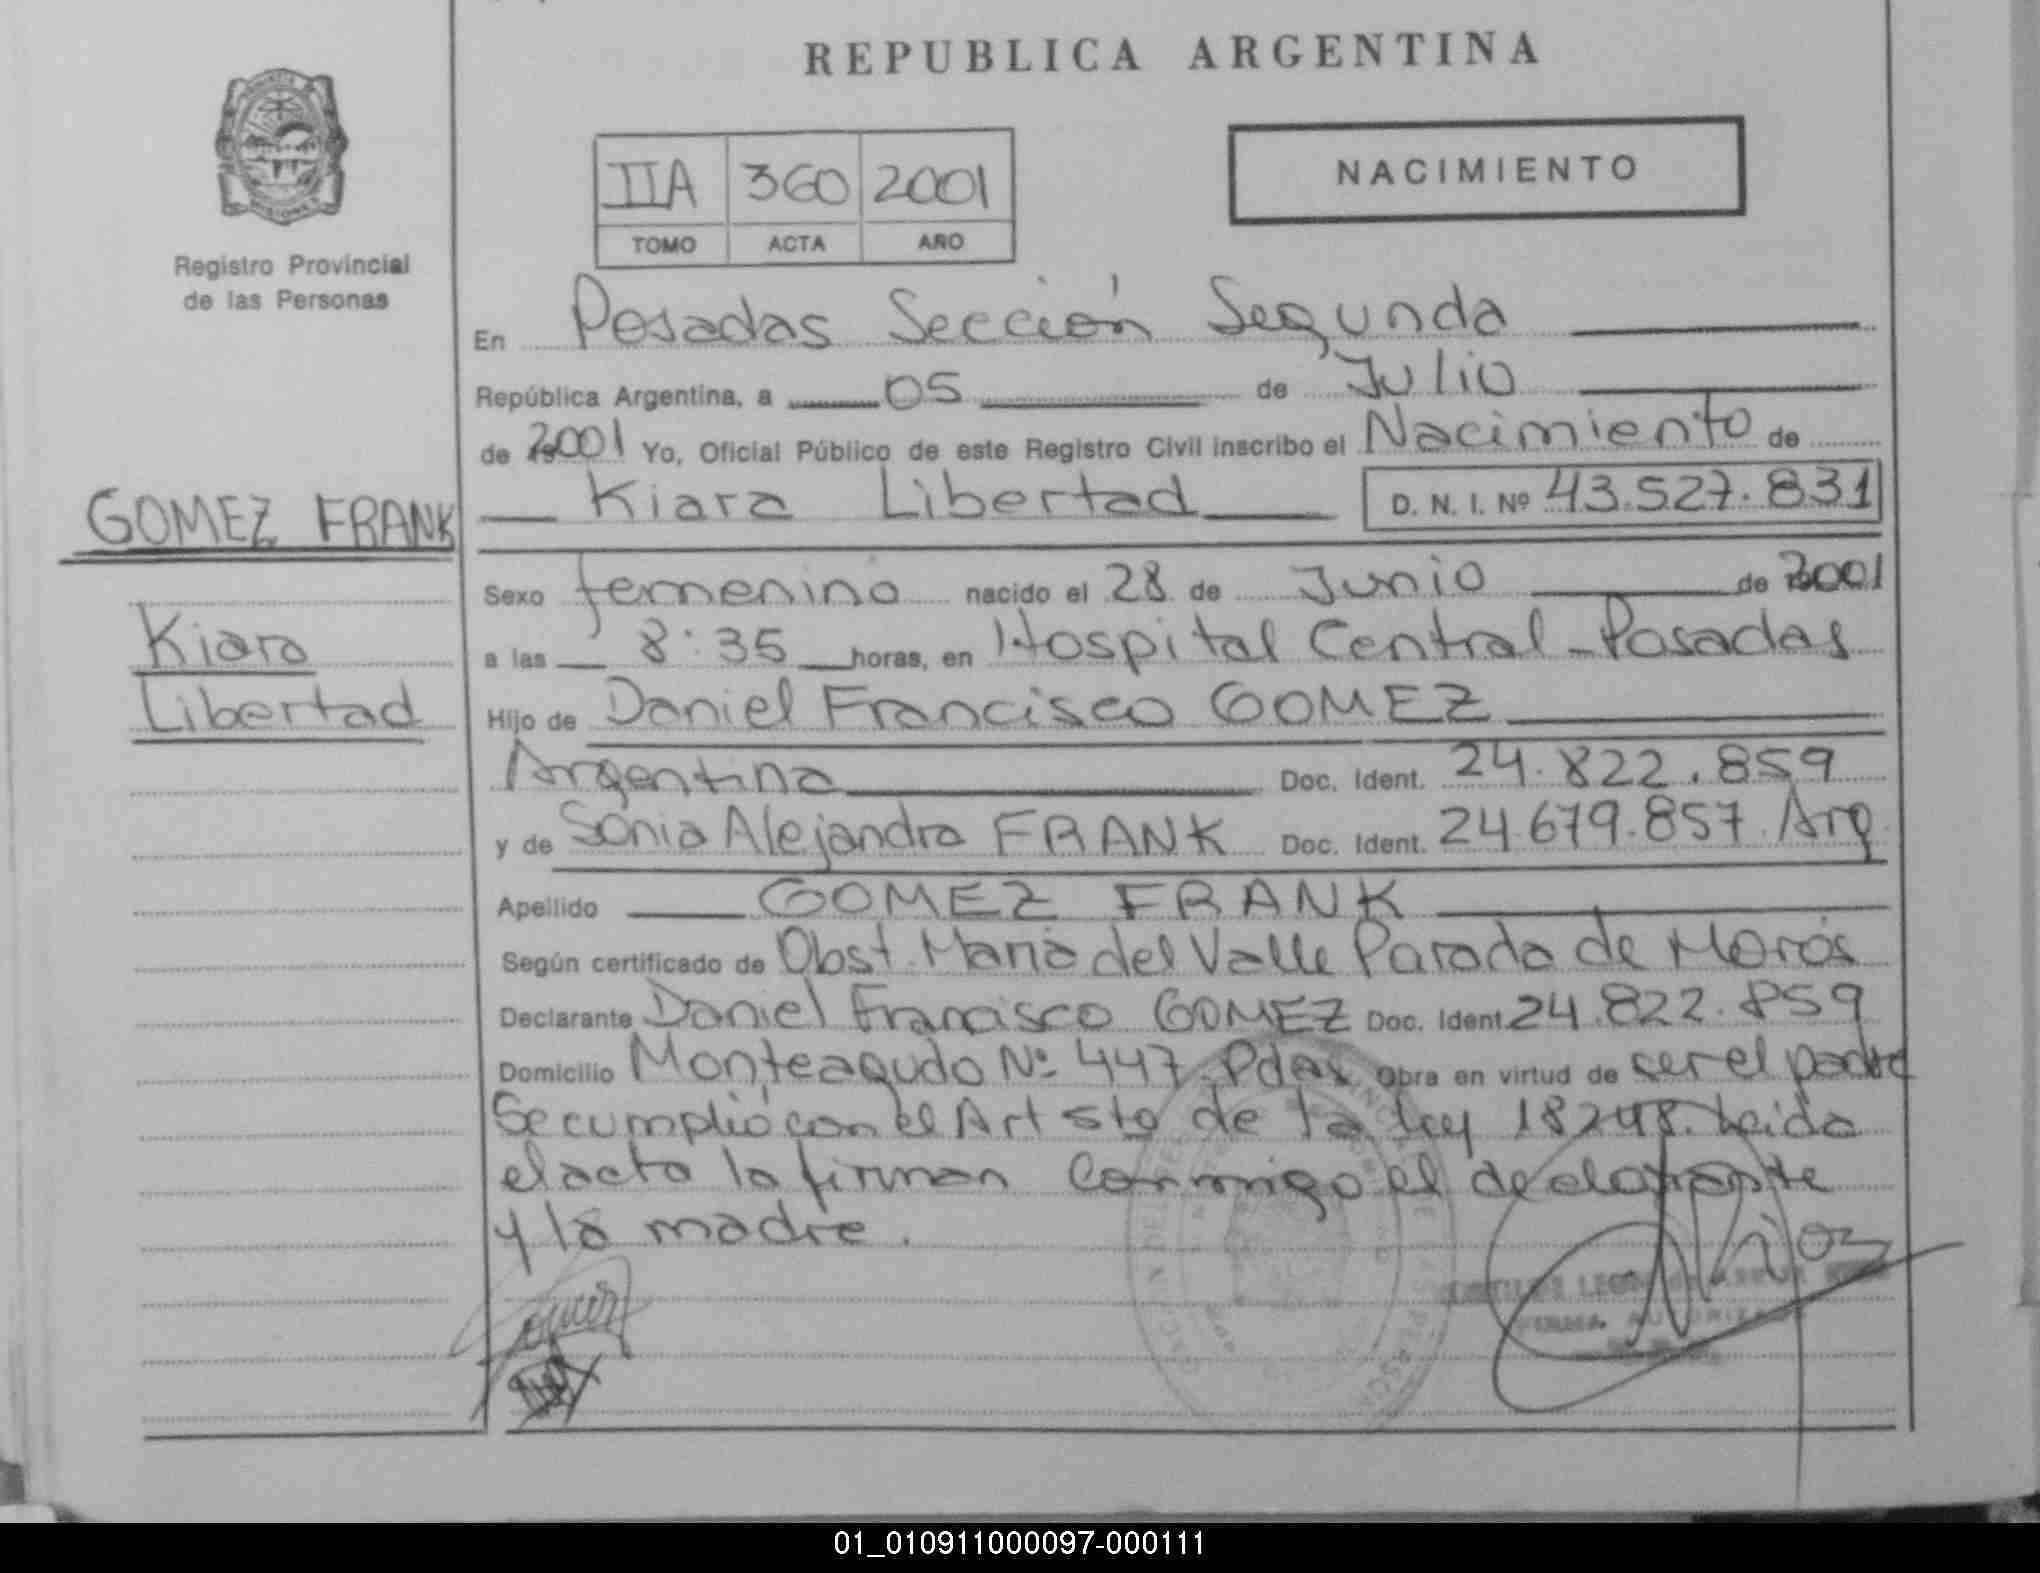 REPUBLICA ARGENTINA
NACIMIENTO
IIA 360 2001
TOMO ACTA AÑO
MISIONES
Registro Provincial
de las Personas
En Posadas Sección Segunda
República Argentina, a 05 de Julio
de 2001 Yo, Oficial Público de este Registro Civil inscribo el Nacimiento de
Kiara Libertad D. N. I. Nº 43.527.831
GOMEZ FRANK
Kiara
Libertad
Sexo femenino nacido el 28 de Junio de 2001
a las 8:35 horas, en Hospital Central - Posadas
Hijo de Daniel Francisco GOMEZ
Argentina Doc. Ident. 24.822.859
y de Sonia Alejandra FRANK Doc. Ident. 24.679.857 Arg
Apellido GOMEZ FRANK
Según certificado de Obst. Maria del Valle Parada de Morós
Declarante Daniel Francisco GOMEZ Doc. Ident. 24.822.859
Domicilio Monteagudo Nº 447 Pdas Obra en virtud de ser el padre
Se cumplió con el Art 5to de la ley 18248. Leida
el acta la firman conmigo el declarante
y la madre.
FIRMA AUTORIZADA
01_010911000097-000111